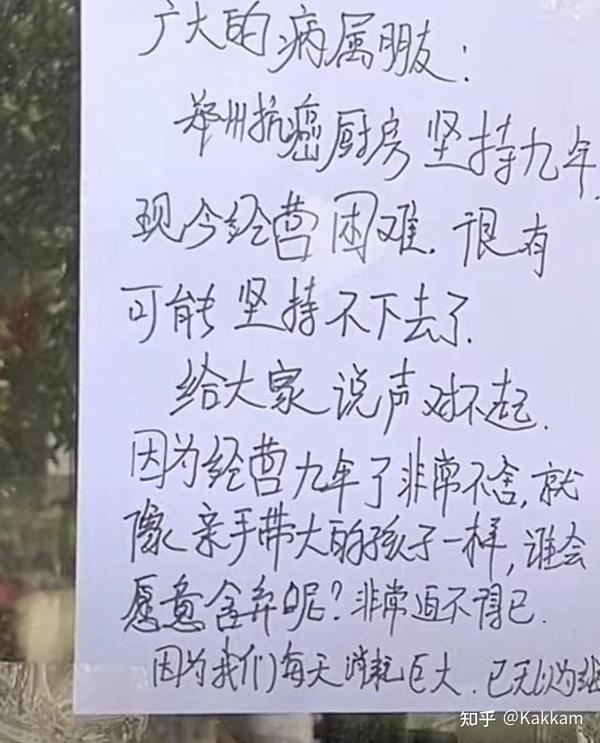 广大的病属朋友：
郑州抗癌厨房坚持九年.
现今经营困难.很有
可能坚持不下去了.
给大家说声对不起.
因为经营九年了非常不舍,就
像亲手带大的孩子一样,谁会
愿意舍弃呢?非常迫不得已.
因为我们每天消耗巨大.已无以为继
知乎 @Kakkam